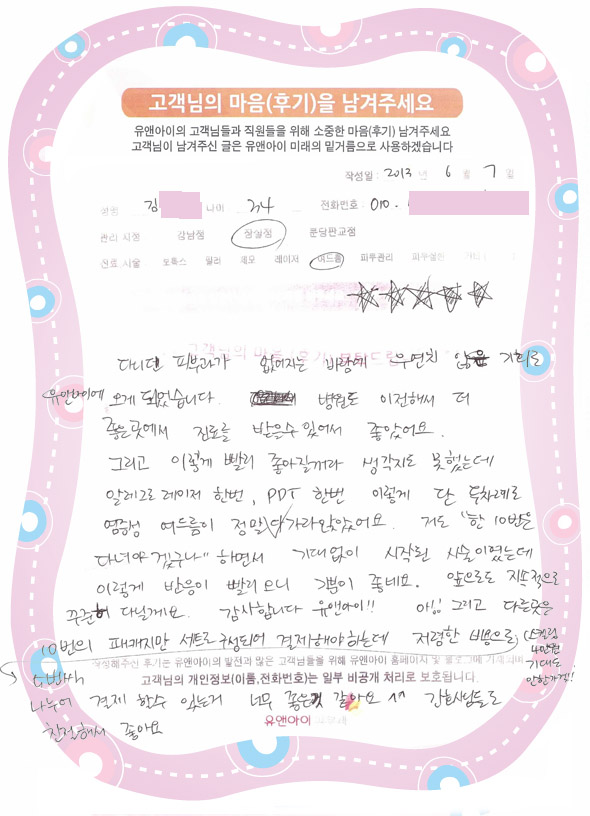 고객님의 마음(후기)을 남겨주세요
유앤아이의 고객님들과 직원들을 위해 소중한 마음(후기) 남겨주세요
고객님이 남겨주신 글은 유앤아이 미래의 밑거름으로 사용하겠습니다
작성일 : 2013 년 6 월 7 일
성명 김 나이 24 전화번호 010 -
관리 지점 강남점 잠실점 분당판교점
진료 시술 보톡스 필러 제모 레이저 여드름 피부관리 피부질환
고객님의 마음
다니던 피부과가 없어지는 바람에 우연치 않은 기회로
유앤아이에 오게 되었습니다. 병원도 이전해서 더
좋은곳에서 진료를 받을수 있어서 좋았어요.
그리고 이렇게 빨리 좋아질꺼라 생각지도 못했는데
알레그로 레이저 한번, PDT 한번 이렇게 단 두차례로
염증성 여드름이 정말 다 가라앉았어요. 저도 "한 10번은
다녀야 겠구나" 하면서 기대없이 시작된 시술이였는데
이렇게 반응이 빨리 오니 기분이 좋네요. 앞으로도 지속적으로
꾸준히 다닐게요. 감사합니다 유앤아이!! 아! 그리고 다른곳은
10번의 패캐지만 세트로 구성되어 결제해야하는데 저렴한 비용으로
(스켈링 4만원 기대도 안한가격!)
작성해주신 후기는 유앤아이의 발전과 많은 고객님들을 위해 유앤아이 홈페이지 및 블로그에 기재되며
고객님의 개인정보(이름,전화번호)는 일부 비공개 처리로 보호됩니다
나누어 결제 할수 있는게 너무 좋은거 같아요 ^^
유앤아이 피부과
친절해서 좋아요